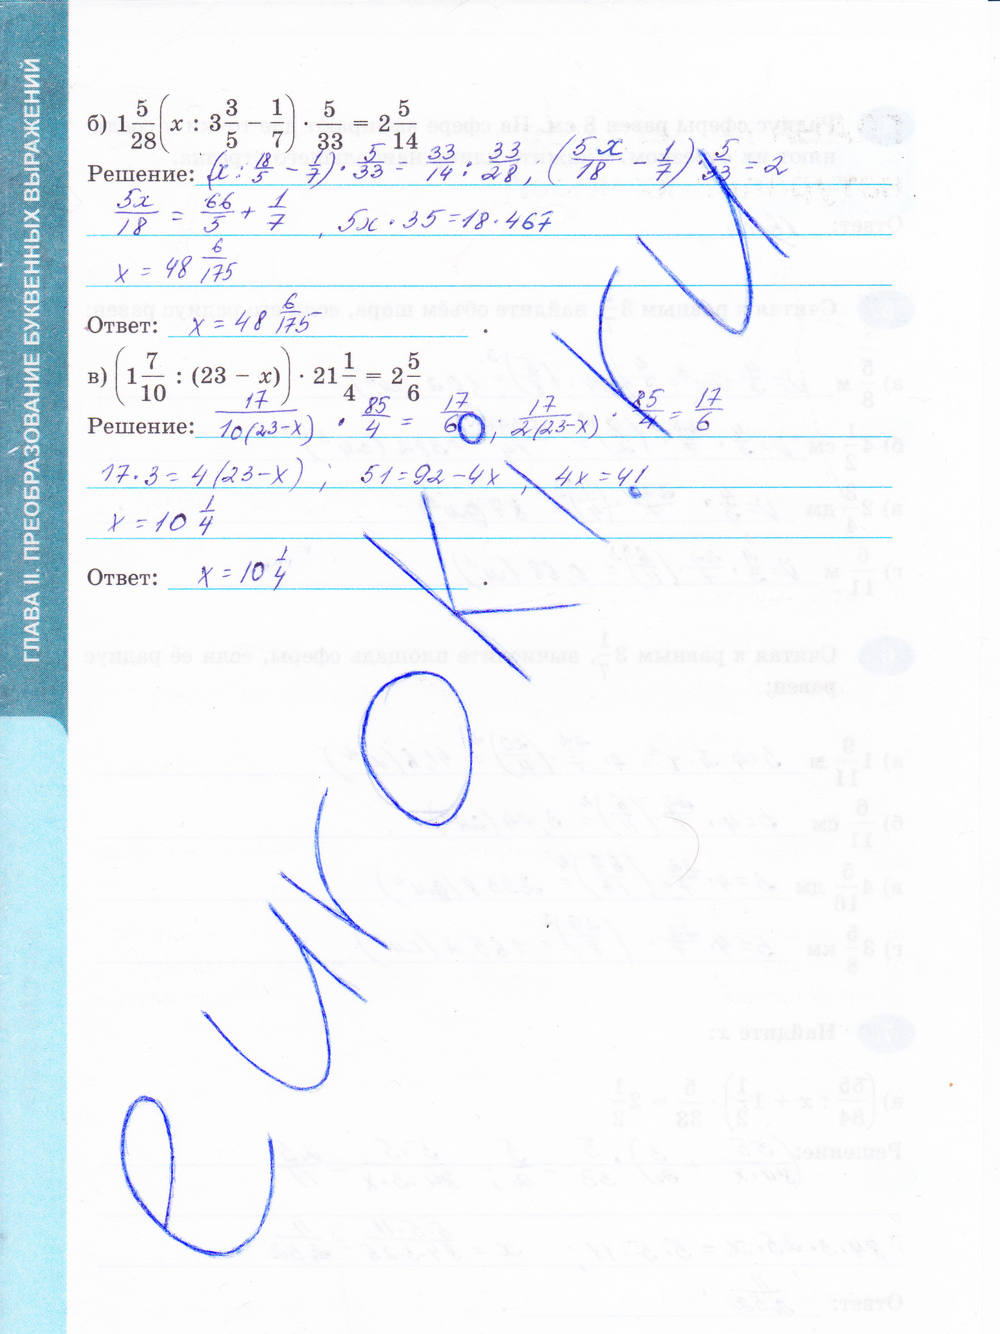 ГЛАВА II. ПРЕОБРАЗОВАНИЕ БУКВЕННЫХ ВЫРАЖЕНИЙ
б) 1 5/28 (x : 3 3/5 − 1/7) · 5/33 = 2 5/14
Решение: (x : 18/5 − 1/7) · 5/33 = 33/14 : 33/28, (5x/18 − 1/7) · 5/33 = 2
5x/18 = 66/5 + 1/7, 5x · 35 = 18 · 467
x = 48 6/175
Ответ: x = 48 6/175.
в) (1 7/10 : (23 − x)) · 21 1/4 = 2 5/6
Решение: 17/10(23−x) · 85/4 = 17/6; 17/2(23−x) · 85/4 = 17/6
17·3 = 4(23−x); 51 = 92−4x, 4x = 41
x = 10 1/4
Ответ: x = 10 1/4.
eurokki.ru